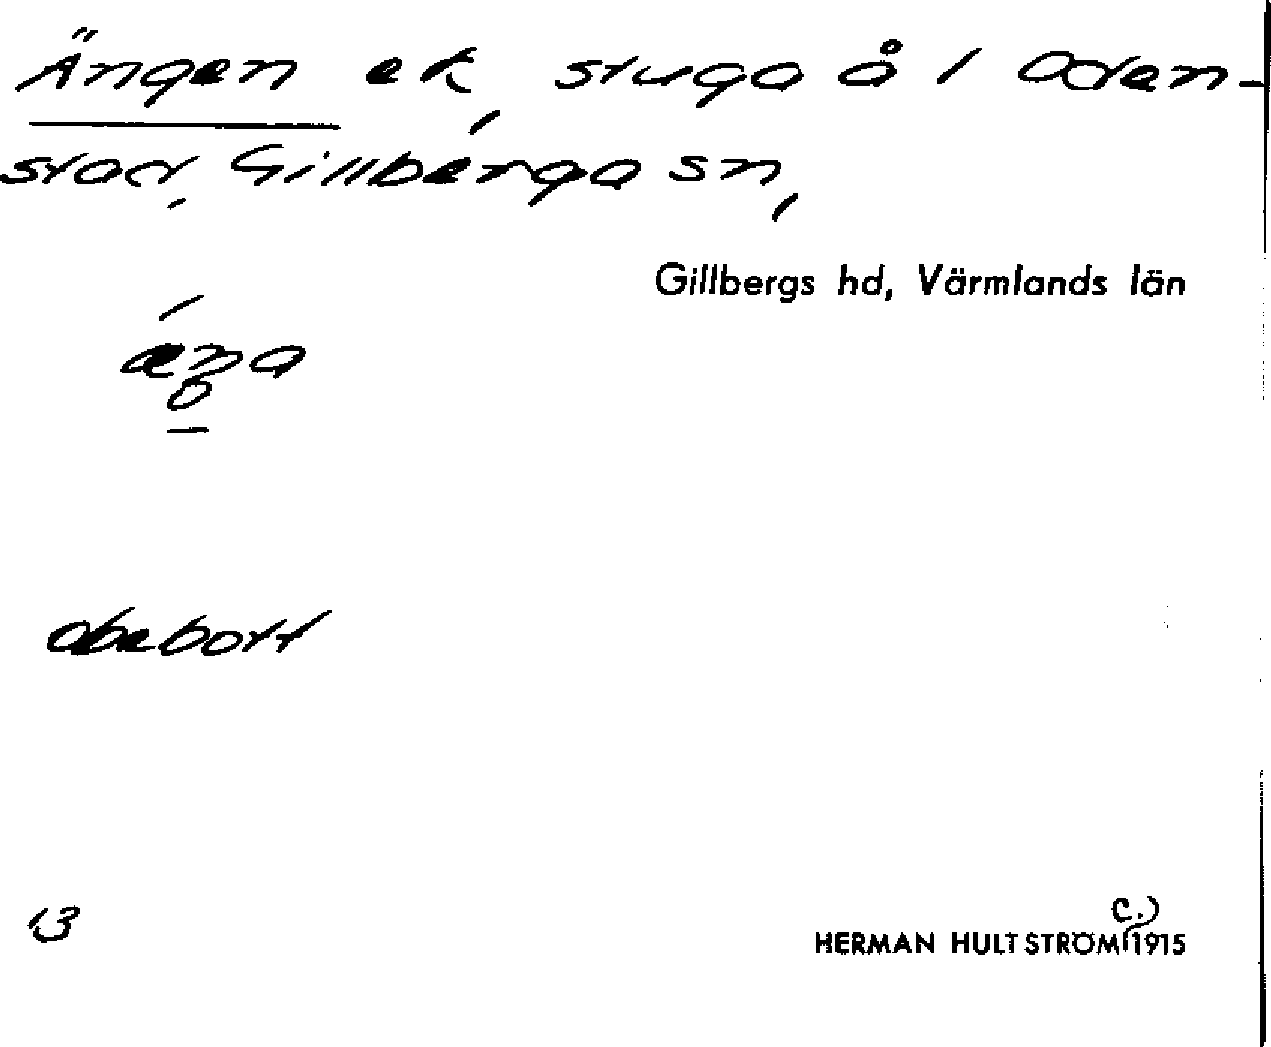 Ängen ek, stuga å 1 Oden-
stad, Gillberga sn,
Gillbergs hd, Värmlands län
obebott
13
c.)
HERMAN HULTSTRÖM 1915